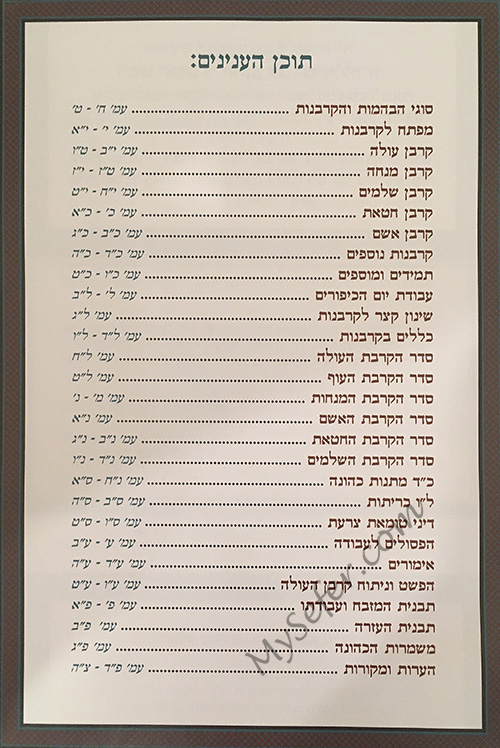 תוכן הענינים:
סוגי הבהמות והקרבנות ........ עמ' ח' - ט'
מפתח לקרבנות ........ עמ' י' - י"א
קרבן עולה ........ עמ' י"ב - ט"ו
קרבן מנחה ........ עמ' ט"ז - י"ז
קרבן שלמים ........ עמ' י"ח - י"ט
קרבן חטאת ........ עמ' כ' - כ"א
קרבן אשם ........ עמ' כ"ב - כ"ג
קרבנות נוספים ........ עמ' כ"ד - כ"ה
תמידים ומוספים ........ עמ' כ"ו - כ"ט
עבודת יום הכיפורים ........ עמ' ל' - ל"ב
שינון קצר לקרבנות ........ עמ' ל"ג
כללים בקרבנות ........ עמ' ל"ד - ל"ו
סדר הקרבת העולה ........ עמ' ל"ח
סדר הקרבת העוף ........ עמ' ל"ט
סדר הקרבת המנחות ........ עמ' מ' - נ'
סדר הקרבת האשם ........ עמ' נ"א
סדר הקרבת החטאת ........ עמ' נ"ב - נ"ג
סדר הקרבת השלמים ........ עמ' נ"ד - נ"ו
כ"ד מתנות כהונה ........ עמ' נ"ח - ס"א
ל"ו כריתות ........ עמ' ס"ב - ס"ה
דיני טומאת צרעת ........ עמ' ס"ו - ס"ט
הפסולים לעבודה ........ עמ' ע' - ע"ב
אימורים ........ עמ' ע"ד - ע"ה
הפשט וניתוח קרבן העולה ........ עמ' ע"ו - ע"ט
תבנית המזבח ועבודתו ........ עמ' פ' - פ"א
תבנית העזרה ........ עמ' פ"ב
משמרות הכהונה ........ עמ' פ"ג
הערות ומקורות ........ עמ' פ"ד - צ"ה
MySefer.com